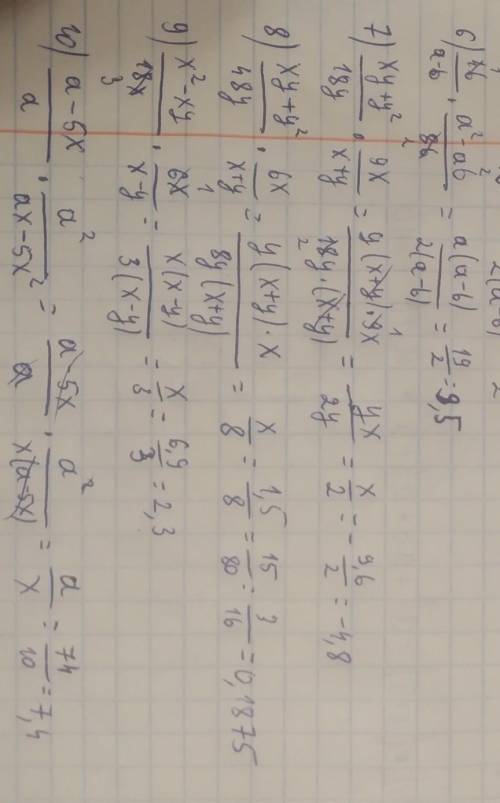 2(a-b) 2
6) 4b/a-b · a²-ab/8b = a(a-b)/2(a-b) = 19/2 = 9,5
7) xy+y²/18y · 9x/x+y = y(x+y)·9x/18y·(x+y) = yx/2y = x/2 = -9,6/2 = -4,8
8) xy+y²/48y · 6x/x+y = y(x+y)·x/8y(x+y) = x/8 = 1,5/8 = 15/80 = 3/16 = 0,1875
9) x²-xy/18x · 6x/x-y = x(x-y)/3(x-y) = x/3 = 6,9/3 = 2,3
10) a-5x/a · a²/ax-5x² = a-5x/a · a²/x(a-5x) = a/x = 74/10 = 7,4